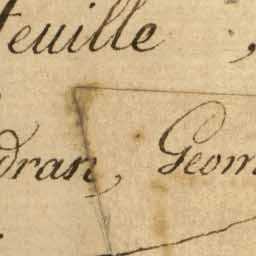 feuille,
dran, Geom